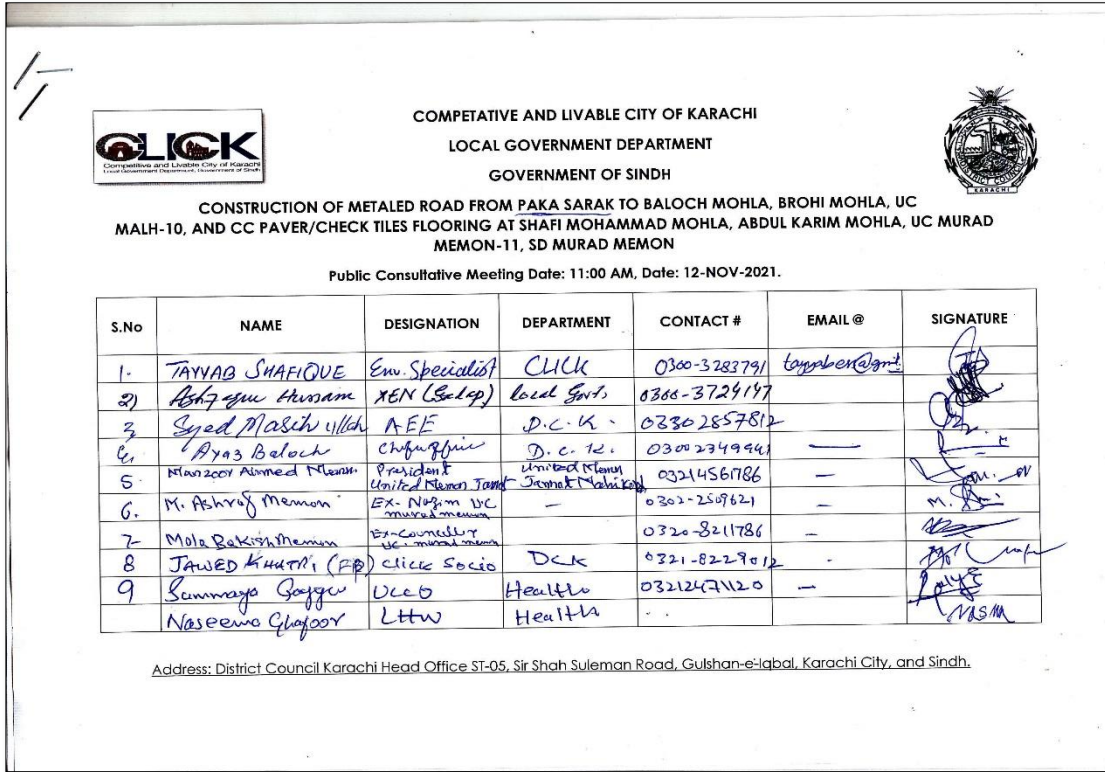 1-
CLICK
Competitive and Livable City of Karachi
Local Government Department, Government of Sindh
COMPETATIVE AND LIVABLE CITY OF KARACHI
LOCAL GOVERNMENT DEPARTMENT
GOVERNMENT OF SINDH
DISTRICT COUNCIL
KARACHI
CONSTRUCTION OF METALED ROAD FROM PAKA SARAK TO BALOCH MOHLA, BROHI MOHLA, UC
MALH-10, AND CC PAVER/CHECK TILES FLOORING AT SHAFI MOHAMMAD MOHLA, ABDUL KARIM MOHLA, UC MURAD
MEMON-11, SD MURAD MEMON
Public Consultative Meeting Date: 11:00 AM, Date: 12-NOV-2021.
S.No NAME DESIGNATION DEPARTMENT CONTACT # EMAIL @ SIGNATURE
1- TAYYAB SHAFIQUE Env. Specialist CLICK 0300-3283791
2) Hussain XEN Local Govt, 0300-3724147
3 Syed Masih ullah AEE D.C.K. 03302857812
4 Ayaz Baloch D.C.K. 03002349941 —
5. Manzoor Ahmed Memon President United Memon Jamat United Memon Jamat 03214561786 —
6. M. Ashraf Memon Ex-Nazim UC murad memon — 0302-2509621 — M.
7- Mola Bakish Memon Ex-Councellor UC murad memon 0320-8211786 —
8 JAWED KHATRI Click Socio DCK 0321-8229012 -
9 Health 03212471120 —
Naseema Ghafoor LHW Health
Address: District Council Karachi Head Office ST-05, Sir Shah Suleman Road, Gulshan-e-Iqbal, Karachi City, and Sindh.